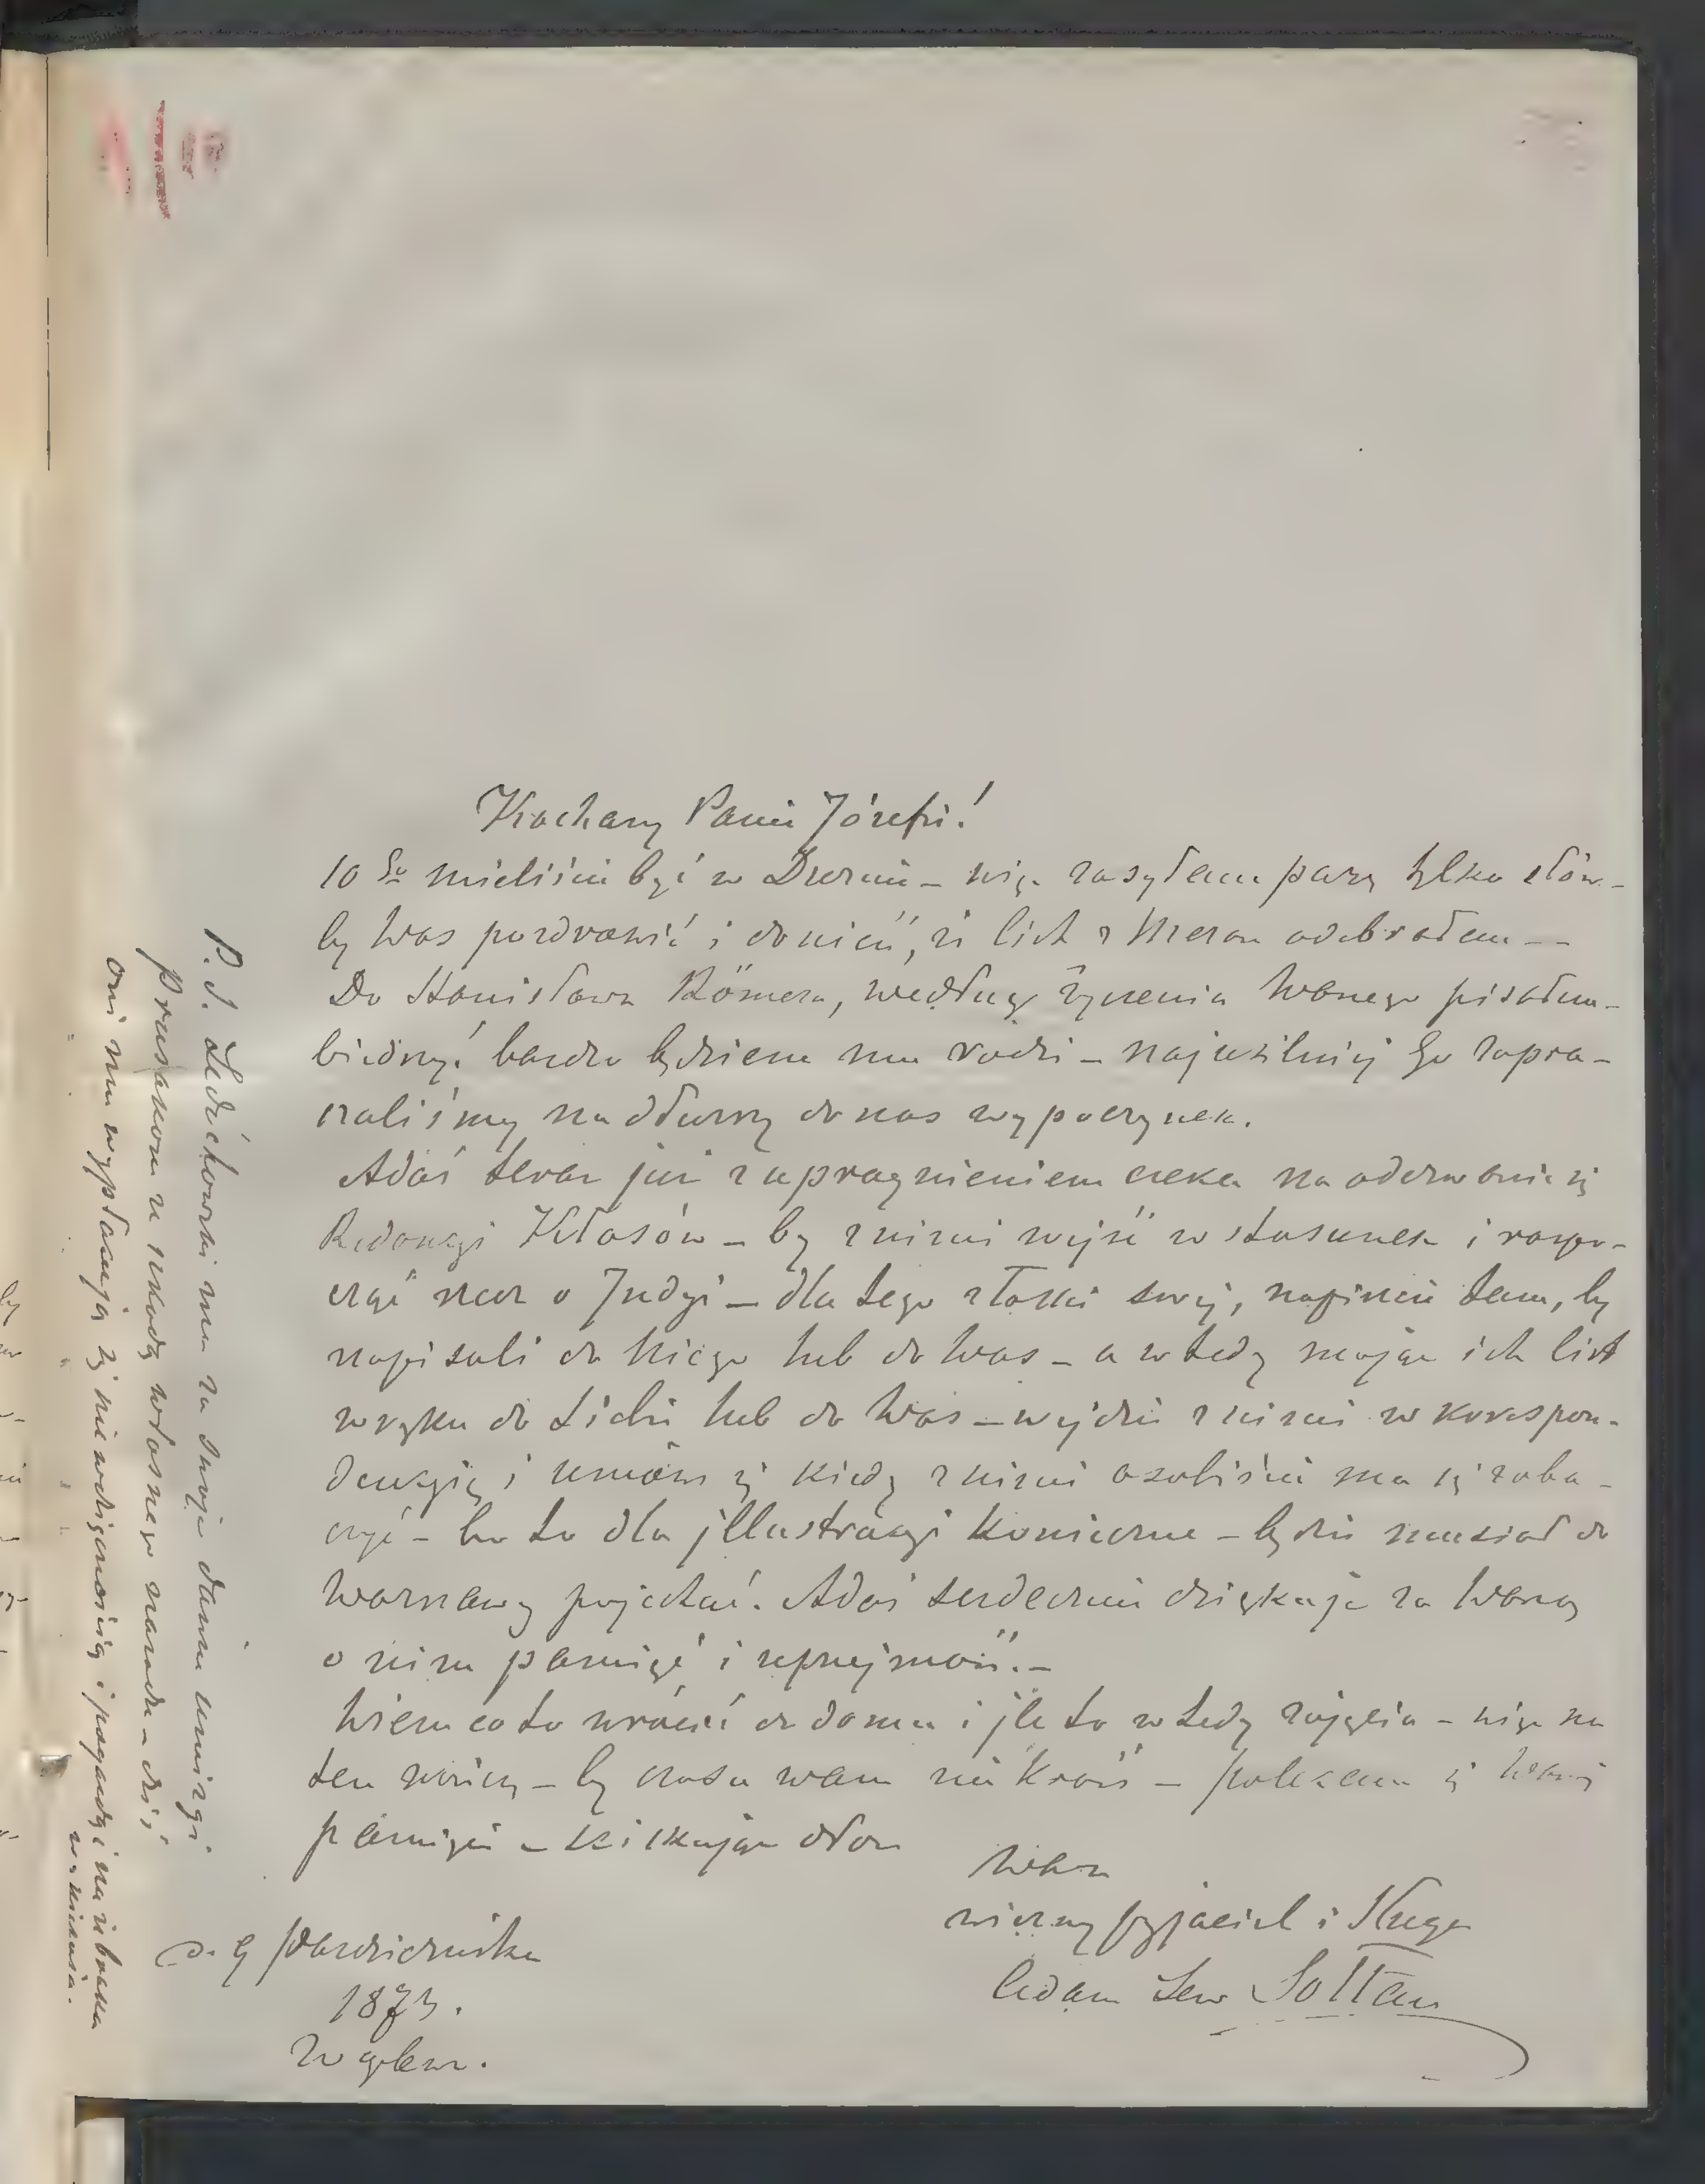 Kochany Panie Józefie!
10 go mieliście być w Dreznie – więc zasyłam parę tylko słów –
by Was pozdrowić i donieść, że list z Meran odebrałem –
Do Stanisława Römera, według życzenia Waszego pisałem –
biedny! bardzo będziem mu radzi – najusilniej go zapra-
szaliśmy na dłuższy do nas wypoczynek.
Adaś teraz już z upragnieniem czeka na oderwanie się
Redakcyi Kłosów – by z nimi wejść w stosunek i rozpo-
cząć rzecz o Indyi – dla tego z łaski swej, napiszcie tam, by
napisali do Niego lub do Was – a wtedy mając ich list
w ręku do Siebie lub do Was – wejdzie z nimi w korespon-
dencyię i umówi się kiedy z nimi osobiście ma się zoba-
czyć – bo to dla jllustracyi konieczne – będzie musiał do
Warszawy pojechać. Adaś serdecznie dziękuje za Waszą
o nim pamięć i uprzejmość. –
Wiem co to wrócić do domu i jle to wtedy zajęcia – więc na
tem kończę – by czasu wam nie kraść – polecam się Waszej
pamięci – ściskając dłoń
Wasz
wierny przyjaciel i Sługa
Adam Lew Sołtan
d. 9 Października
1873.
P. S. Ledóchowski ma za swoje dawne umizgi
Prusakom ze szkodą własnego narodu – dziś
oni mu wypłacają się niewdzięcznością i pogardą